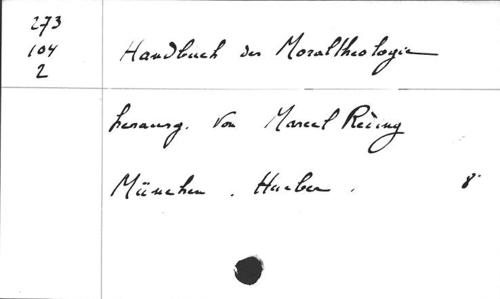 273
104
2
Handbuch der Moraltheologie
herausg. von Marcel Reding
München. Hueber. 8°